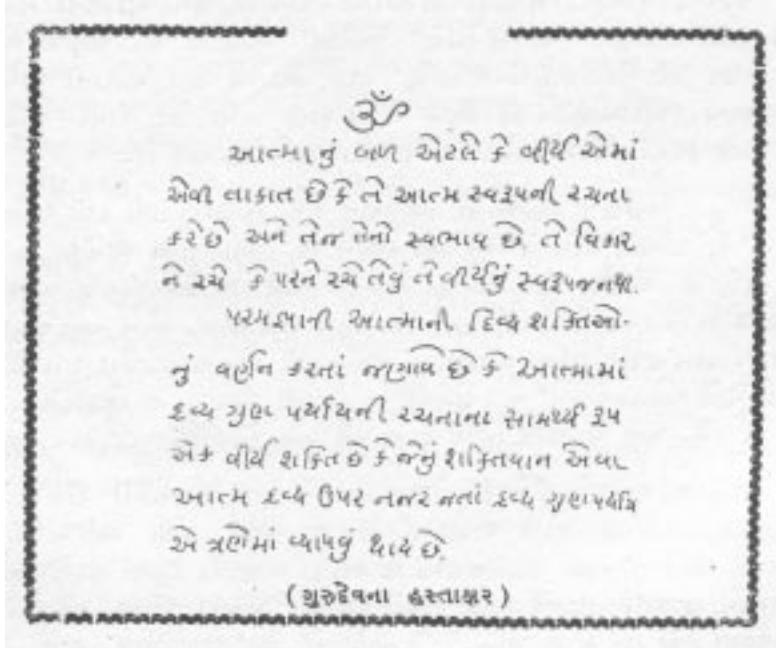 ૐ
આત્માનું બળ એટલે કે વીર્ય એમાં
એવી તાકાત છે કે તે આત્મ સ્વરૂપની રચના
કરે છે અને તેજ તેનો સ્વભાવ છે. તે વિકાર
ને રચે કે પરને રચે તેવું તે વીર્યનું સ્વરૂપજ નથી.
પરમજ્ઞાની આત્માની દિવ્ય શક્તિઓ-
નું વર્ણન કરતાં જણાવે છે કે આત્મામાં
દ્રવ્ય ગુણ પર્યાયની રચનાના સામર્થ્ય રૂપ
એક વીર્ય શક્તિ છે કે જેનું શક્તિવાન એવા
આત્મ દ્રવ્ય ઉપર નજર જતાં દ્રવ્ય ગુણ પર્યાય
એ ત્રણેમાં વ્યાપવું થાય છે.
(ગુરુદેવના હસ્તાક્ષર)